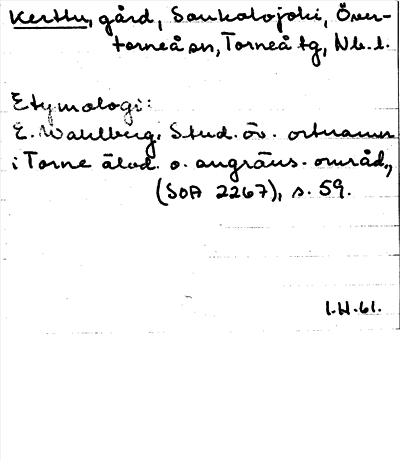 Kerttu, gård, Soukolojoki, Över-
torneå sn, Torneå tg, Nb. l.
Etymologi:
E. Wahlberg, Stud. öv. ortnamn
i Torne älvd. o. angräns. områd.,
(SOA 2267), s. 59.
1.H.61.